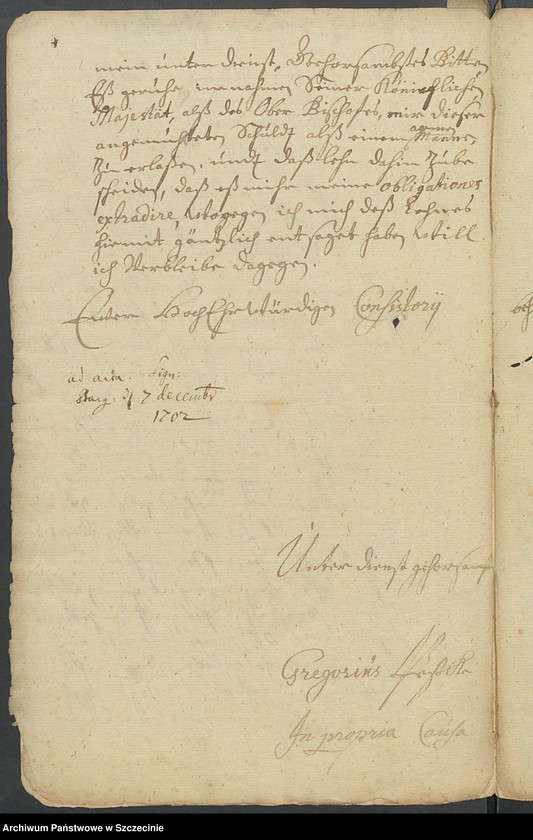 mein unter dienst, Gehorsambstes Bitten
Eß geruhe, im nahmen Seiner Königlichen
Majestät, alß des Ober Bischofes, mir dieser
angemuhteten Schuldt alß einem armen Manne,
zu erlaßen, undt daß lehn dahin zube
scheiden, daß eß mihr meine obligationes
extradire, wogegen ich mich deß Lehnes
hiemit gäntzlich entsaget haben will.
ich Verbleibe dagegen.
Ewer HochEhrWürdigen Consistorij
ad acta. Sign:
7 decembr
1702
Unter dienst gehorsamst
Gregorius
In propria Causa
Archiwum Państwowe w Szczecinie